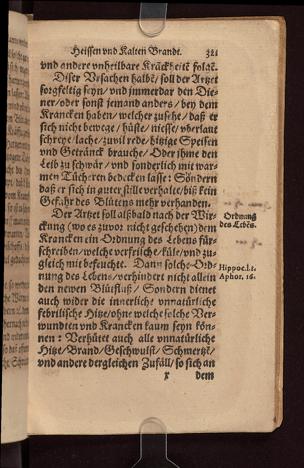 Heissen vnd Kalten Brandt. 321
vnd andere vnheilbare Kräckheitē folgē.
Diser Vrsachen halbē/ soll der Artzet
sorgfeltig seyn/ vnd immerdar den Die-
ner/ oder sonst jemand anders/ bey dem
Krancken haben/ welcher zusehe/ daß er
sich nicht bewege/ hüste/ niesse/ vberlaut
schreye/ lache/ zuvil rede/ hitzige Speisen
vnd Getränck brauche/ Oder ihme den
Leib zu schwär/ vnd sonderlich mit war-
men Tücheren bedecken lasse: Sondern
daß er sich in guter still verhalte/ biß kein
Gefahr des Blütens mehr verhanden.
Der Artzet soll alßbald nach der Wür-
ckung (wo es zuvor nicht geschehen) dem
Krancken ein Ordnung des Lebens für-
schreiben/ welche verfrische/ küle/ vnd zu-
gleich mit befeuchte. Dann solche Ord-
nung des Lebens/ verhindert nicht allein
den newen Blütfluß/ Sondern dienet
auch wider die innerliche vnnatürliche
febrilische Hitze/ ohne welche solche Ver-
wundten vnd Krancken kaum seyn kön-
nen: Verhütet auch alle vnnatürliche
Hitz/ Brand/ Geschwulst/ Schmertz/
vnd andere dergleichen Zufäll/ so sich an
x dem
Ordnung
des Lebēs.
Hippoc. l. 1.
Aphor. 16.